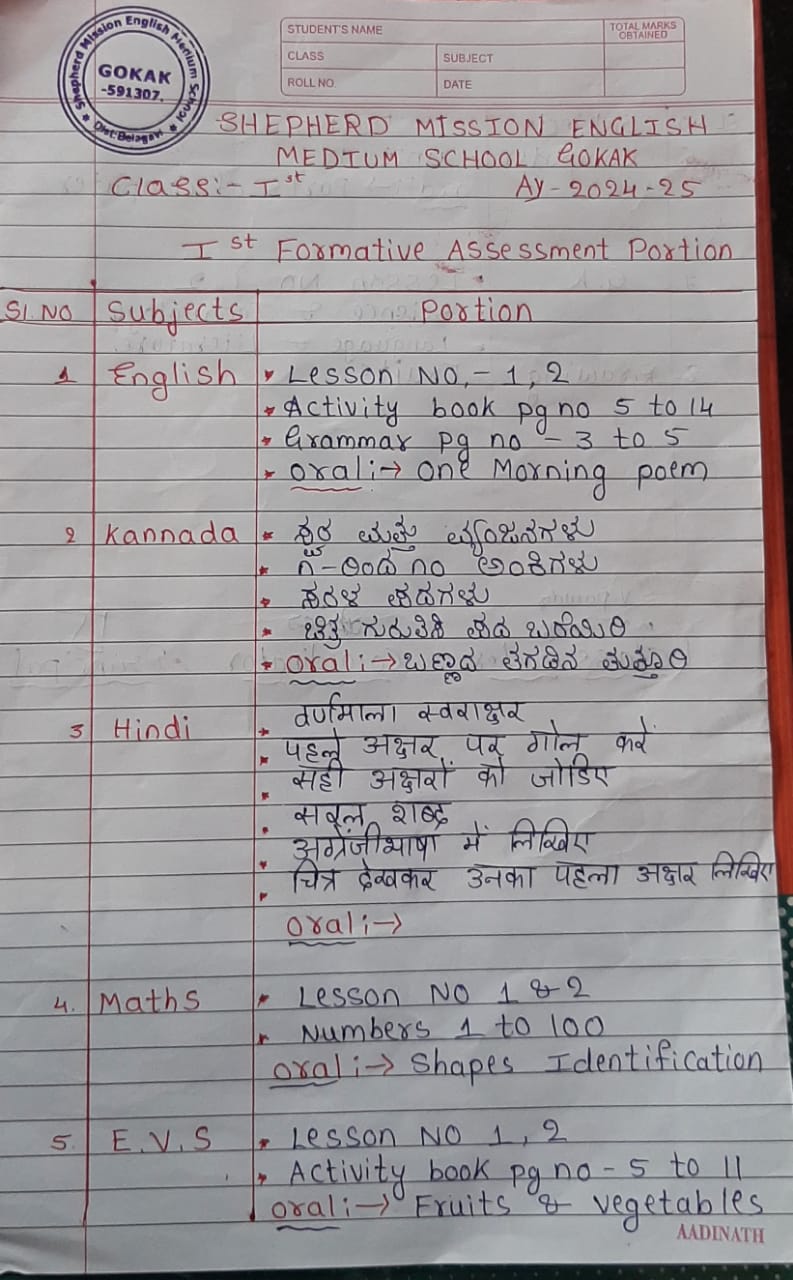 Shepherd Mission English Medium School
GOKAK
-591307.
Dist:Belagavi
STUDENT'S NAME
TOTAL MARKS OBTAINED
CLASS
SUBJECT
ROLL NO.
DATE
SHEPHERD MISSION ENGLISH
MEDIUM SCHOOL GOKAK
Class:- Ist AY-2024-25
Ist Formative Assessment Portion
Sl. NO Subjects Portion
1 English • Lesson NO,- 1, 2
• Activity book pg no 5 to 14
• Grammar pg no - 3 to 5
• Oral :→ One Morning poem
2 Kannada • ಸ್ವರ ಮತ್ತು ವ್ಯಂಜನಗಳು
• ೧-ರಿಂದ ೧೦ ಅಂಕಿಗಳು
• ಸರಳ ಪದಗಳು
• ಚಿತ್ರ ಗುರುತಿಸಿ ಪದ ಬರೆಯಿರಿ.
• Oral :→ ಬಣ್ಣದ ತಗಡಿನ ತುತ್ತೂರಿ
3 Hindi • वर्णमाला स्वराक्षर
• पहले अक्षर पर गोल करें
• सही अक्षरों को जोडिए
• सरल शब्द
• अंग्रेजीभाषा में लिखिए
• चित्र देखकर उनका पहला अक्षर लिखिए
Oral :→
4. Maths • Lesson NO 1 & 2
• Numbers 1 to 100
Oral :→ Shapes Identification
5. E.V.S • Lesson NO 1, 2
• Activity book pg no - 5 to 11
Oral :→ Fruits & vegetables
AADINATH